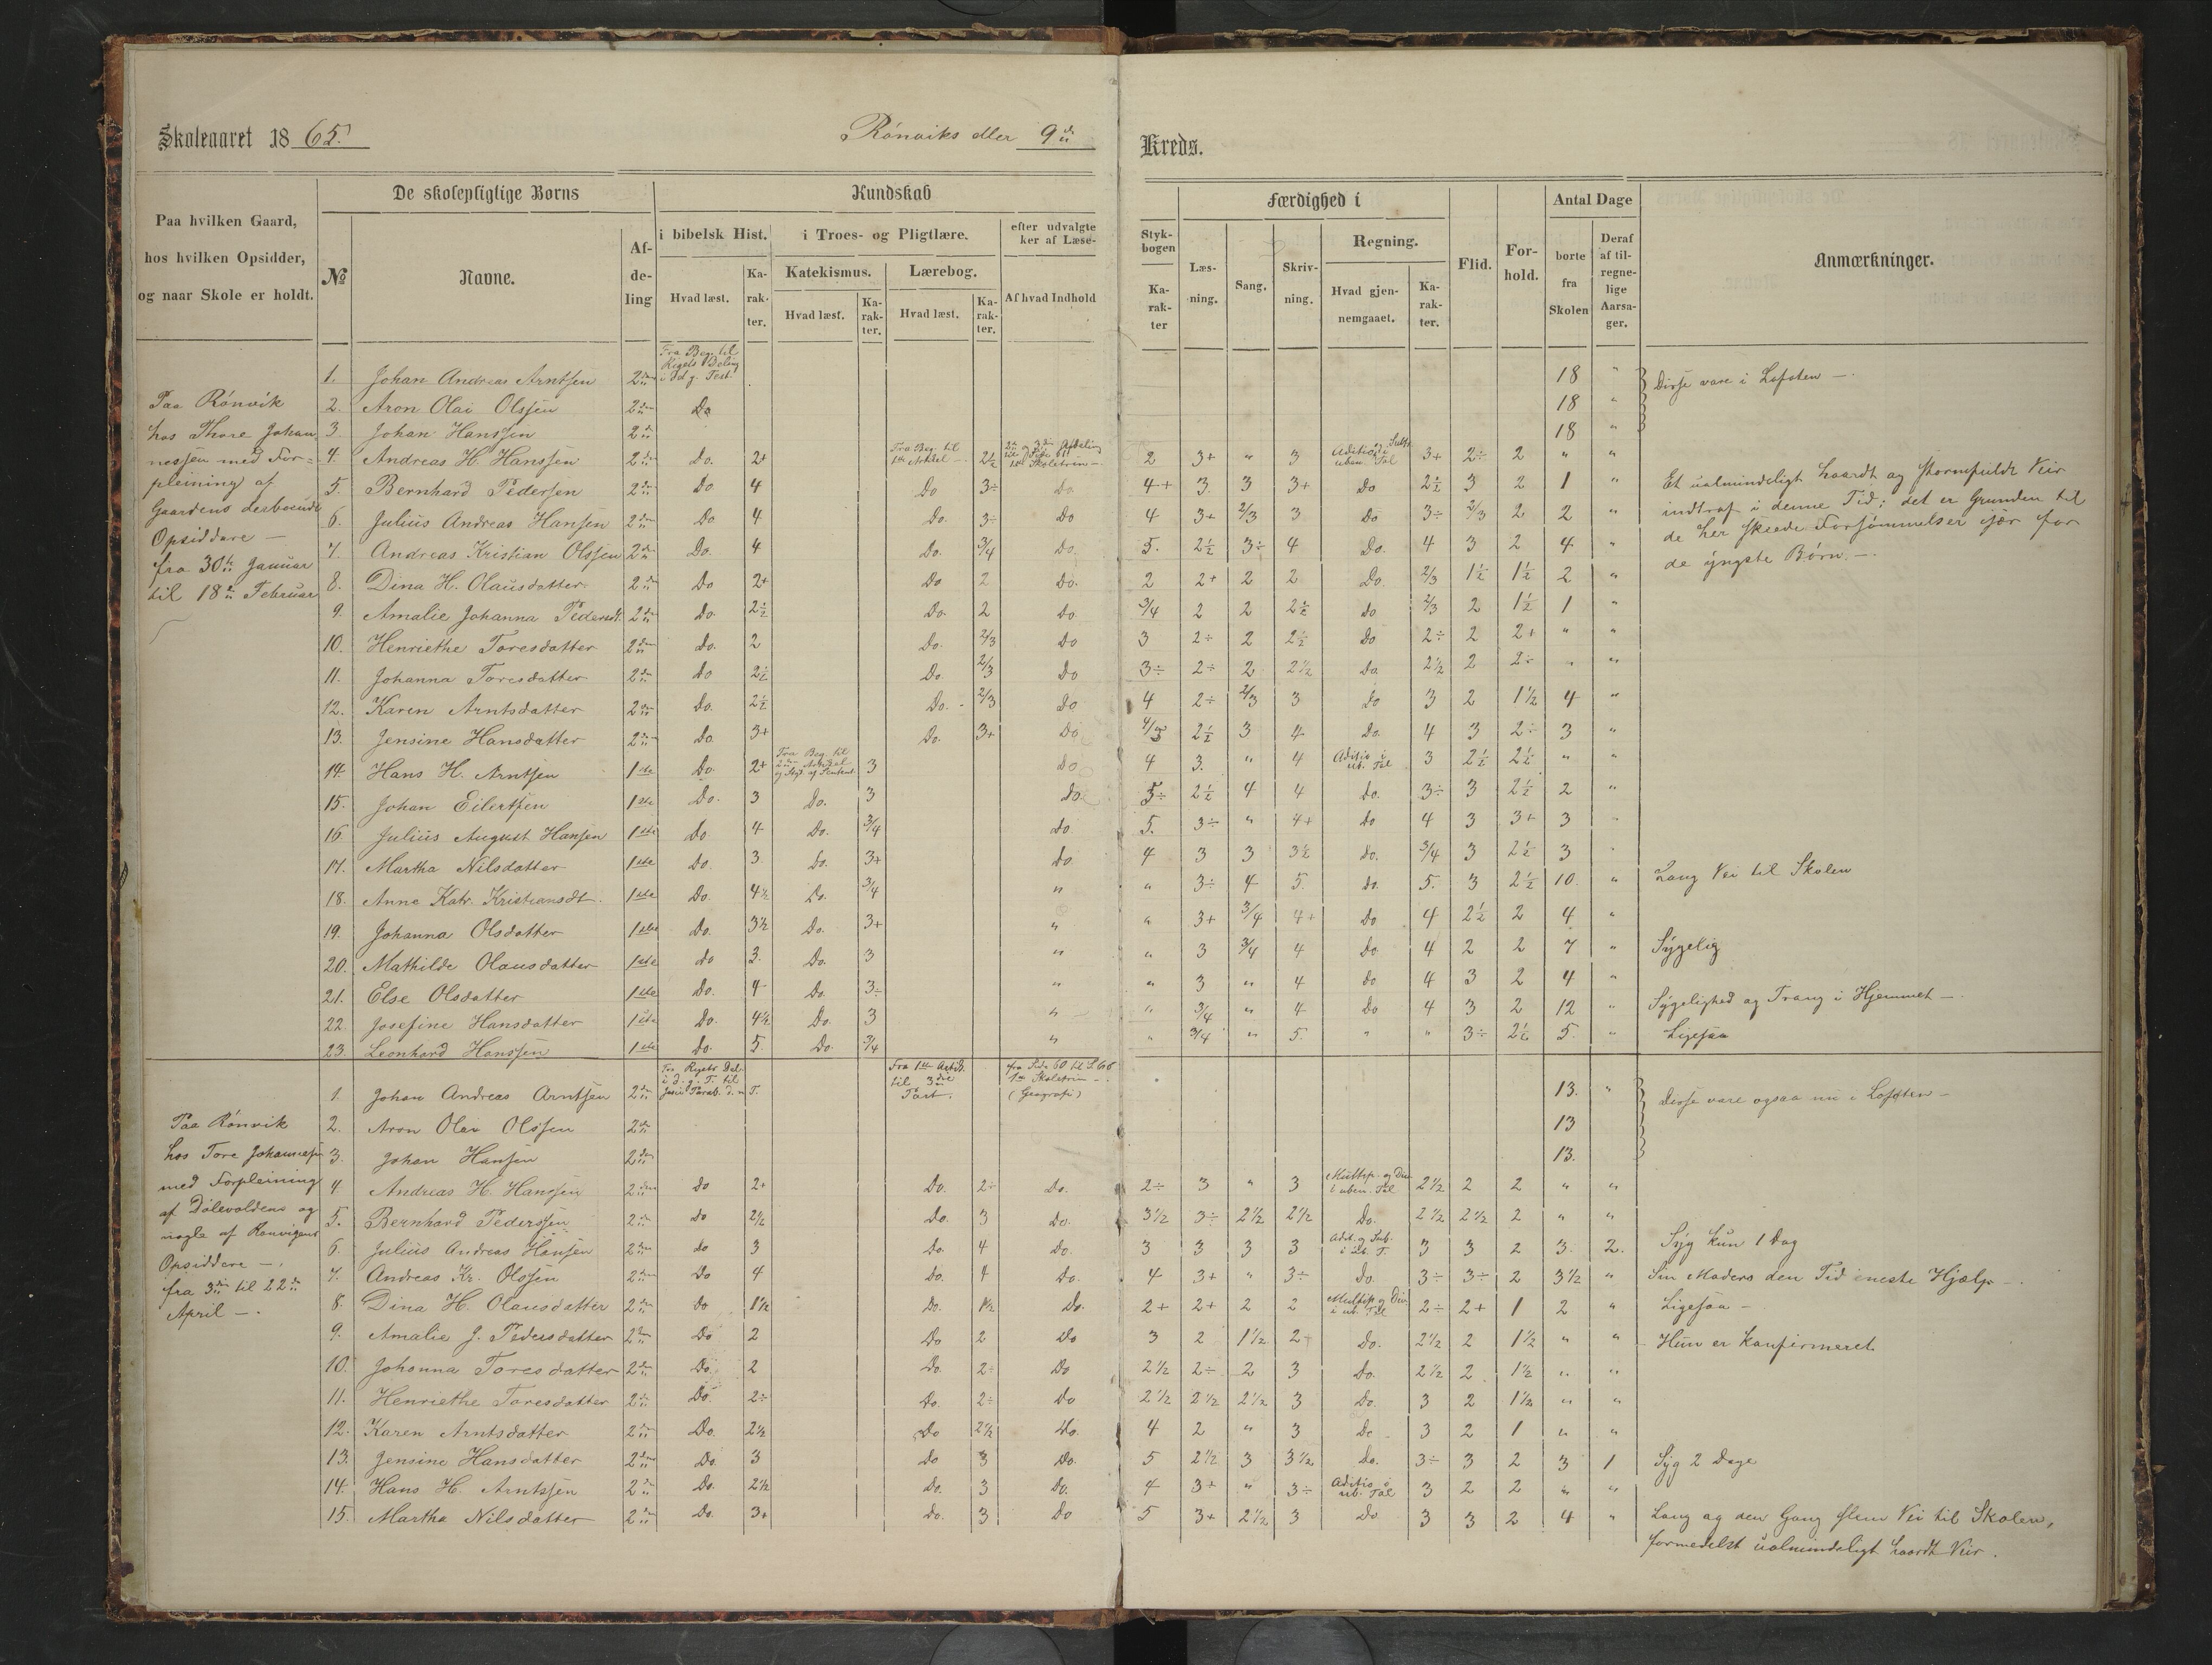 Skoleaaret 18 65.
Rönviks eller 9de
Kreds.
Paa hvilken Gaard,
hos hvilken Opsidder,
og naar Skole er holdt.
De skolepligtige Børns
№
Navne.
Af-
de-
ling
Kundskab
i bibelsk Hist.
Hvad læst.
Ka-
rak-
ter.
i Troes- og Pligtlære.
Katekismus.
Hvad læst.
Ka-
rak-
ter.
Lærebog.
Hvad læst.
Ka-
rak-
ter.
efter udvalgte
ker af Læse-
Af hvad Indhold
Styk-
bogen
Ka-
rak-
ter
Færdighed i
Læs-
ning.
Sang.
Skriv-
ning.
Regning.
Hvad gjen-
nemgaaet.
Ka-
rak-
ter.
Flid.
For-
hold.
Antal Dage
borte
fra
Skolen
Deraf
af til-
regne-
lige
Aarsa-
ger.
Anmærkninger.
Paa Rönvik
hos Thore Johan-
nessen med For-
pleining af
Gaardens
Opsiddere —
fra 30te Januar
til 18de Februar
Fra Beg. til
Rigets Deling
i Det g. Test.
1. Johan Andreas Arntsen 2den 18 "
Disse vare i Lofoten —.
2. Aron Olai Olssen 2den Do 18 "
3. Johan Hanssen 2den 18 "
4. Andreas H. Hanssen 2den Do. 2+ Fra Beg. til 1ste Artikel — 2½ 2 3+ " 3 3+ 2÷ 2 " "
5. Bernhard Pedersen 2den Do 4 Do 3÷ Do. 4+ 3. 3 3+ Do 2½ 3 2 1 "
6. Julius Andreas Hansen 2den Do 4 Do. 3÷ Do 4 3+ 2/3 3 Do 3÷ 2/3 2 2 "
7. Andreas Kristian Olssen 2den Do. 4 Do. 3/4 Do. 5. 2½ 3÷ 4 Do. 4 3 2 4 "
8. Dina H. Olausdatter 2den Do 2+ Do 2 Do. 2 2+ 2 2 Do. 2/3 1½ 1½ 2 "
9. Amalie Johanna Pedersdt. 2den Do. 2½ Do. 2 Do 3/4 2 2 2½ Do 2/3 2 1½ 1 "
10. Henriethe Toresdatter 2den Do. 2 Do. 2/3 Do 3 2÷ 2 2½ Do 2÷ 2 2+ " "
11. Johanna Toresdatter 2den Do 2½ Do 2/3 Do 3÷ 2÷ 2 2½ Do. 2½ 2 2÷ " "
12. Karen Arntsdatter 2den Do. 2½ Do. 2/3 Do 4 2÷ 2/3 3 Do 3 2 1½ 4 "
13. Jensine Hansdatter 2den Do. 3+ Do. 3+ Do 2½ 3 4 Do. 4 3 2÷ 3 "
14. Hans H. Arntsen 1ste Do. 2+ 3 Do 4 3. " 4 Aditio i ub. Tal 3 2½ 2½ " "
15. Johan Eilertsen 1ste Do. 3 Do. 3 Do. 5÷ 2½ 4 4 Do. 3÷ 3 2½ 2 "
16. Julius August Hansen 1ste Do. 4 Do. 3/4 Do 5. 3÷ " 4+ Do 4 3 3+ 3 "
17. Martha Nilsdatter 1ste Do. 3 Do. 3+ Do. 4 3 3 3½ Do. 3/4 3 2½ 3 "
18. Anne Katr. Kristiansdt. 1ste Do 4½ Do. 3/4 " " 3÷ 4 5. Do. 5. 3 2½ 10. "
Lang Vei til Skolen
19. Johanna Olsdatter 1ste Do. 3½ Do. 3+ " " 3+ 3/4 4+ Do 4 2½ 2 4 "
20. Mathilde Olausdatter 1ste Do 3. Do. 3 " " 3 3/4 4 Do 4 2 2 7 "
Sÿgelig
21. Else Olsdatter 1ste Do. 4 Do 3÷ " " 3 " 4 Do 4 3 2 4 "
22. Josefine Hansdatter 1ste Do. 4½ Do. 3 " " 3/4 " 4 Do 4 3 2 12 "
Sÿgelighed og Trang i Hjemmet —.
23. Leonhard Hanssen 1ste Do. 5. Do. 3/4 " " 3/4 " 5. " " 3÷ 2½ 5. "
Ligesaa
Et ualmindeligt haardt og stormfuldt Veir
indtraf i denne Tid; det er Grunden til
de her skeede Forsömmelser især for
de ÿngste Börn —.
Paa Rönvik
hos Tore Johannessen
med Forpleining
af Dölevoldens og
nogle af Rönvigens
Opsiddere —.
fra 3die til 22de
April —.
1. Johan Andreas Arntsen 2den Fra 1ste Artik. til 3die Part. fra Side 60 til S. 66 1ste Skoletrin — (Geografi) 13. "
Disse vare ogsaa nu i Lofoten —
2. Aron Olai Olssen 2den 13
3. Johan Hansen 2den 13.
4. Andreas H. Hanssen 2den Do 2+ Do. 2÷ Do. 2÷ 3 " 3 Multip. og Div. i uben. Tal 2½ 2 2 " "
5. Bernhard Pederssen 2den Do 2½ Do. 3 Do. 3½ 3÷ 2½ 2½ Do. 2½ 2½ 2 " "
6. Julius Andreas Hansen 2den Do 3 Do. 4 Do. 3 3 3 3 Adit. og Sub. i ub. T. 3 3 2 3. 2.
Sÿg kun 1 Dag
7. Andreas Kr. Olssen 2den Do 4 Do. 4 Do. 4 3+ " 3÷ Do. 3÷ 3÷ 2 3½ "
Sin Moders den Tid eneste Hjælp —.
8. Dina H. Olausdatter 2den Do 1½ Do. 1½ Do. 2+ 2+ 2 2 Multip. og Div. i ub. Tal 2÷ 2+ 1 2 "
Ligesaa —
9. Amalie J. Pedersdatter 2den Do 2 Do 2 Do 3 2 1½ 2+ Do. 2½ 2 1½ " "
Hun er konfirmeret.
10. Johanna Toresdatter 2den Do. 2 Do. 2÷ Do 2½ 2÷ 2 3 Do. 2½ 2 1½ " "
11. Henriethe Toresdatter 2den Do. 2÷ Do. 2÷ Do 2½ 2½ 2½ 3 Do. 3 2 1½ " "
12. Karen Arntsdatter 2den Do. 2½ Do 2½ Do. 4 2 " 3 Do. 3 2 1 " "
13. Jensine Hansdatter 2den Do. 3 Do 3 Do. 5 2½ 3 3½ Do. 3÷ 3 2 3 1
Sÿg 2 Dage
14. Hans H. Arntssen 2den Do. 2½ Do. 3 Do. 4 3+ " 3÷ Aditio i ub. Tal 3 2 2 " "
15. Martha Nilsdatter 2den Do. 3+ Do. 3 Do 5 3+ 2½ 3 Do 3 3 2 4 "
Lang og den Gang slem Vei til Skolen,
formedelst ualmindeligt haardt Veir.